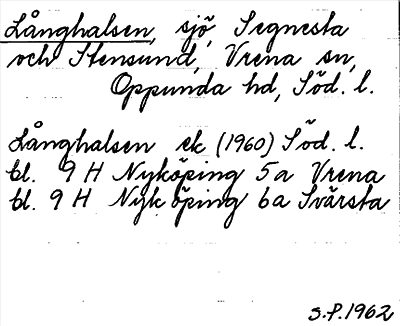 Långhalsen, sjö, Segnesta
och Stensund, Vrena sn,
Oppunda hd, Söd. l.
Långhalsen ek (1960) Söd. l.
bl. 9 H Nyköping 5a Vrena
bl. 9 H Nyköping 6a Svärsta
S.P. 1962